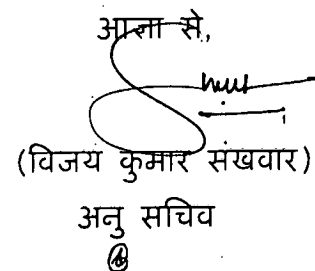 आज्ञा से,
(विजय कुमार संखवार)
अनु सचिव